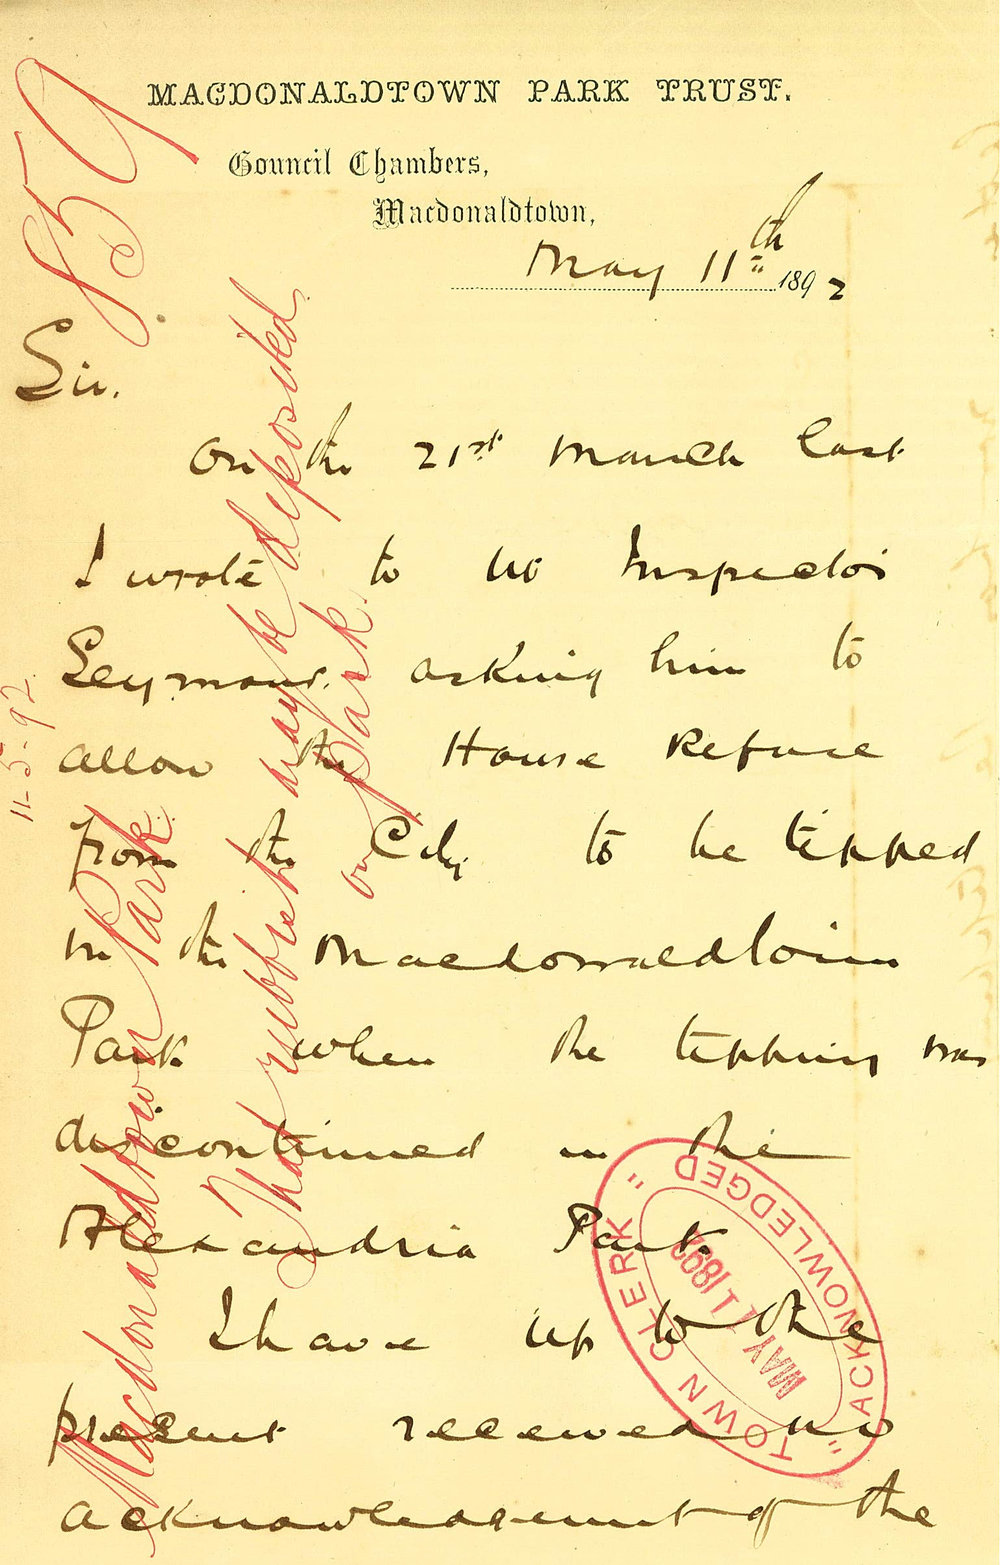 MACDONALDTOWN PARK TRUST.
Council Chambers,
Macdonaldtown,
May 11th 1892
859
Sir.
On the 21st March last
I wrote to Mr Inspector
Seymour. asking him to
allow the House Refuse
from the City to be tipped
in the Macdonaldtown
Park when the tipping was
discontinued in the
Alexandria Park
I have up to the
present received no
acknowledgement of the
Macdonaldtown Park.
That rubbish may be deposited
on Park.
11-5-92
"TOWN CLERK"
MAY 11 1892
"ACKNOWLEDGED"